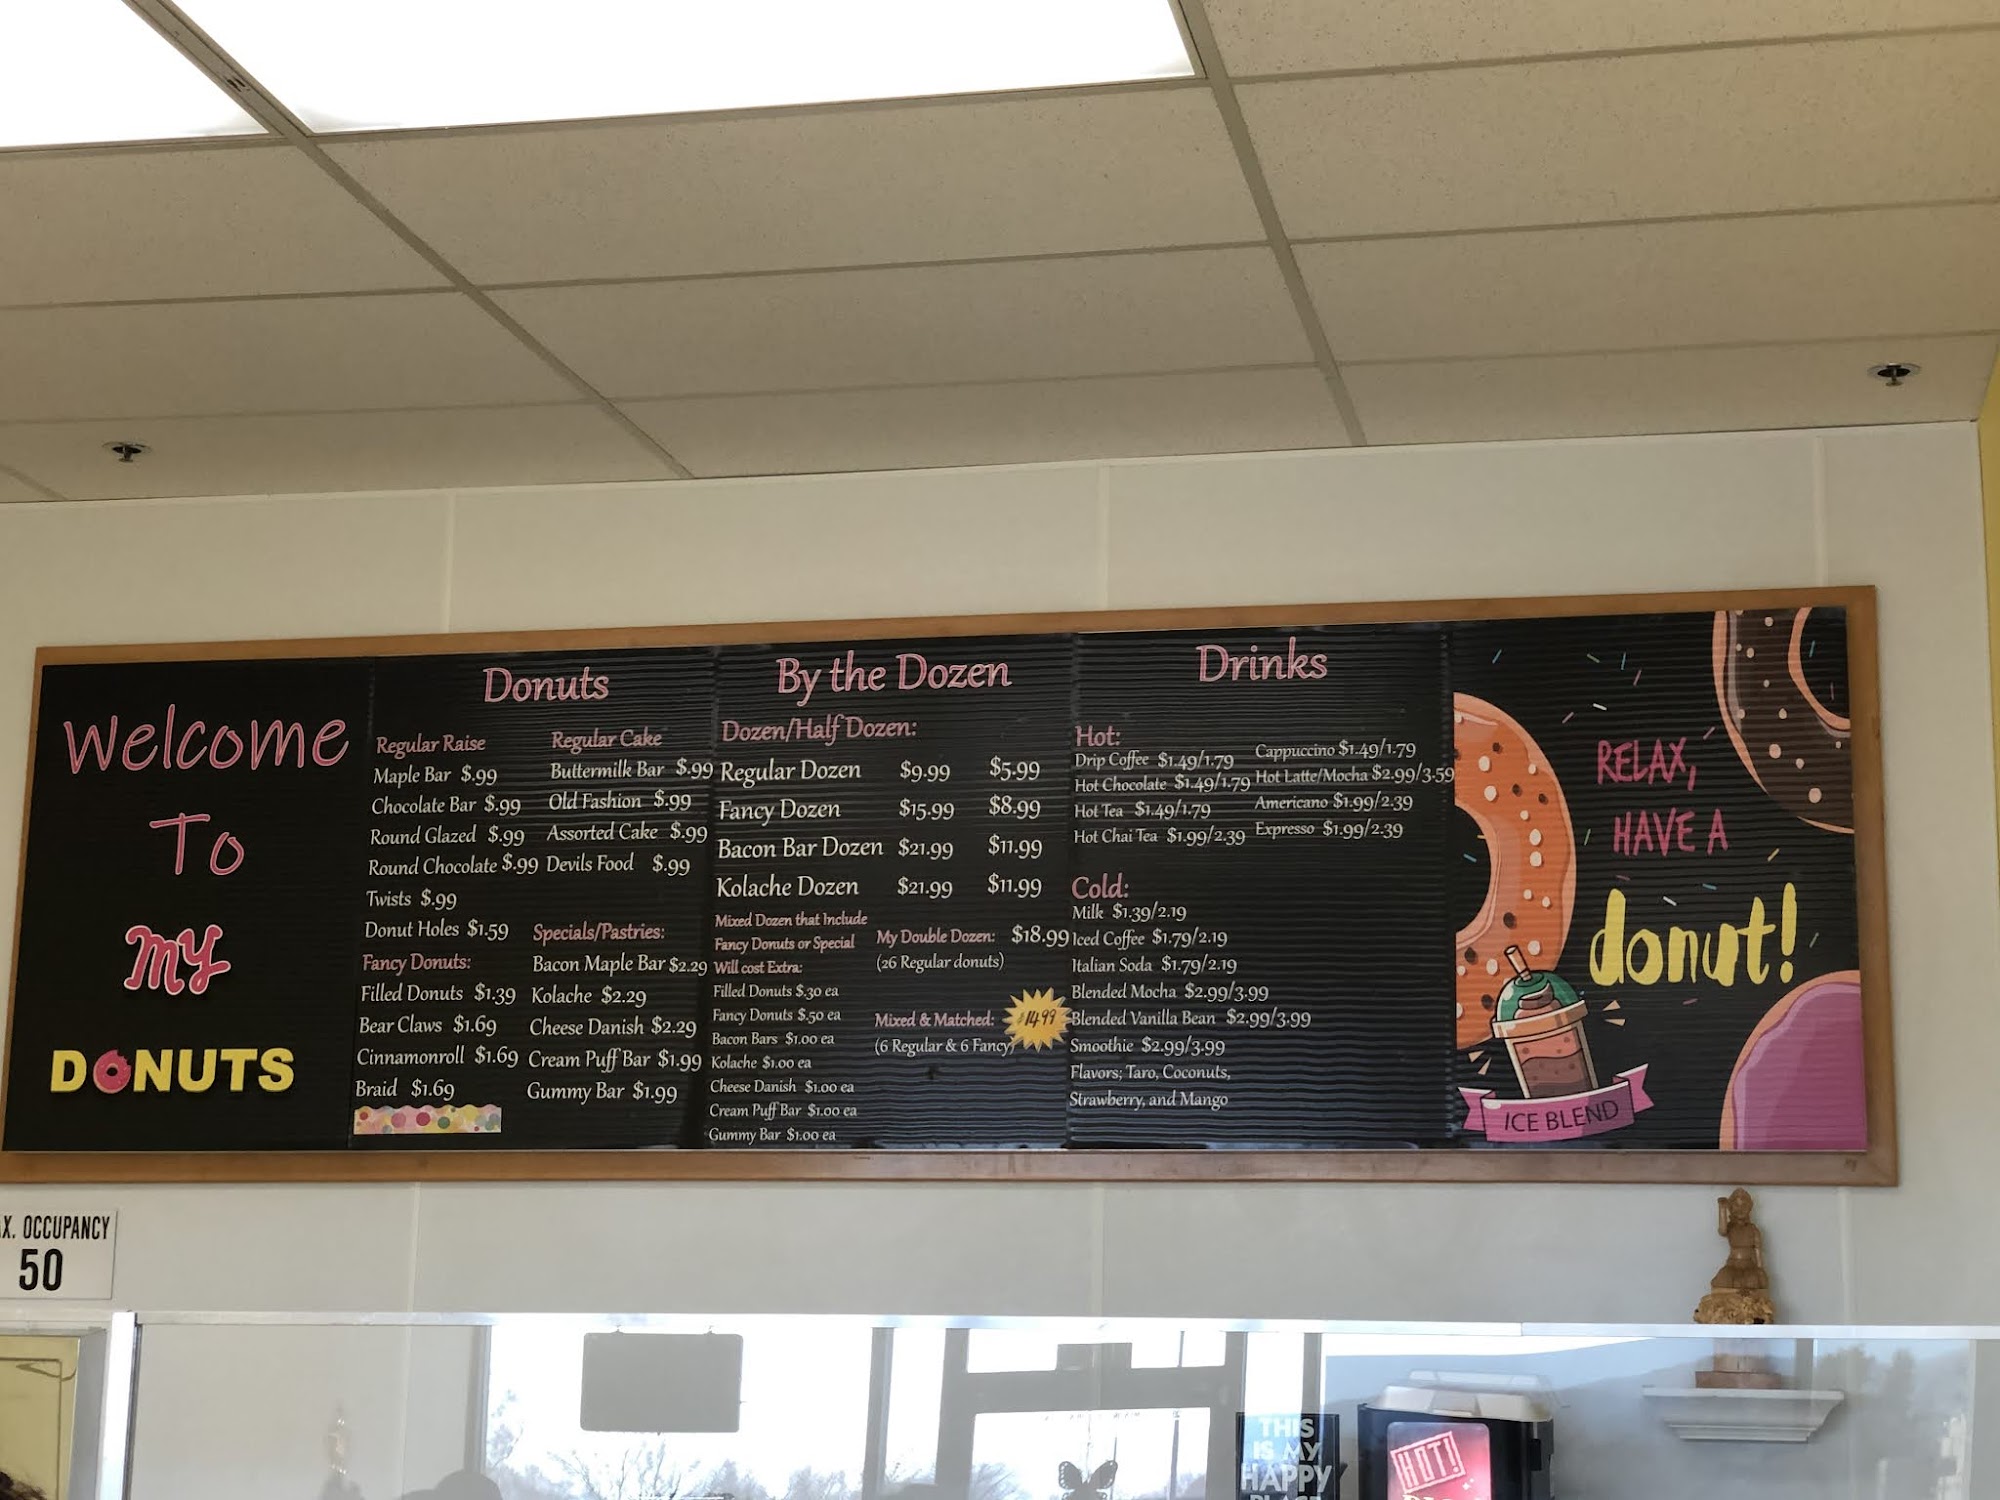 Welcome
To
My
DONUTS
Donuts
Regular Raise
Maple Bar $.99
Chocolate Bar $.99
Round Glazed $.99
Round Chocolate $.99
Twists $.99
Donut Holes $1.59
Fancy Donuts:
Filled Donuts $1.39
Bear Claws $1.69
Cinnamonroll $1.69
Braid $1.69
Regular Cake
Buttermilk Bar $.99
Old Fashion $.99
Assorted Cake $.99
Devils Food $.99
Specials/Pastries:
Bacon Maple Bar $2.29
Kolache $2.29
Cheese Danish $2.29
Cream Puff Bar $1.99
Gummy Bar $1.99
By the Dozen
Dozen/Half Dozen:
Regular Dozen $9.99 $5.99
Fancy Dozen $15.99 $8.99
Bacon Bar Dozen $21.99 $11.99
Kolache Dozen $21.99 $11.99
Mixed Dozen that Include
Fancy Donuts or Special
Will cost Extra:
Filled Donuts $.30 ea
Fancy Donuts $.50 ea
Bacon Bars $1.00 ea
Kolache $1.00 ea
Cheese Danish $1.00 ea
Cream Puff Bar $1.00 ea
Gummy Bar $1.00 ea
My Double Dozen: $18.99
(26 Regular donuts)
Mixed & Matched: $14.99
(6 Regular & 6 Fancy)
Drinks
Hot:
Drip Coffee $1.49/1.79
Hot Chocolate $1.49/1.79
Hot Tea $1.49/1.79
Hot Chai Tea $1.99/2.39
Cappuccino $1.49/1.79
Hot Latte/Mocha $2.99/3.59
Americano $1.99/2.39
Expresso $1.99/2.39
Cold:
Milk $1.39/2.19
Iced Coffee $1.79/2.19
Italian Soda $1.79/2.19
Blended Mocha $2.99/3.99
Blended Vanilla Bean $2.99/3.99
Smoothie $2.99/3.99
Flavors; Taro, Coconuts,
Strawberry, and Mango
RELAX,
HAVE A
donut!
ICE BLEND
X. OCCUPANCY
50
THIS
IS MY
HAPPY
PLACE
HOT!